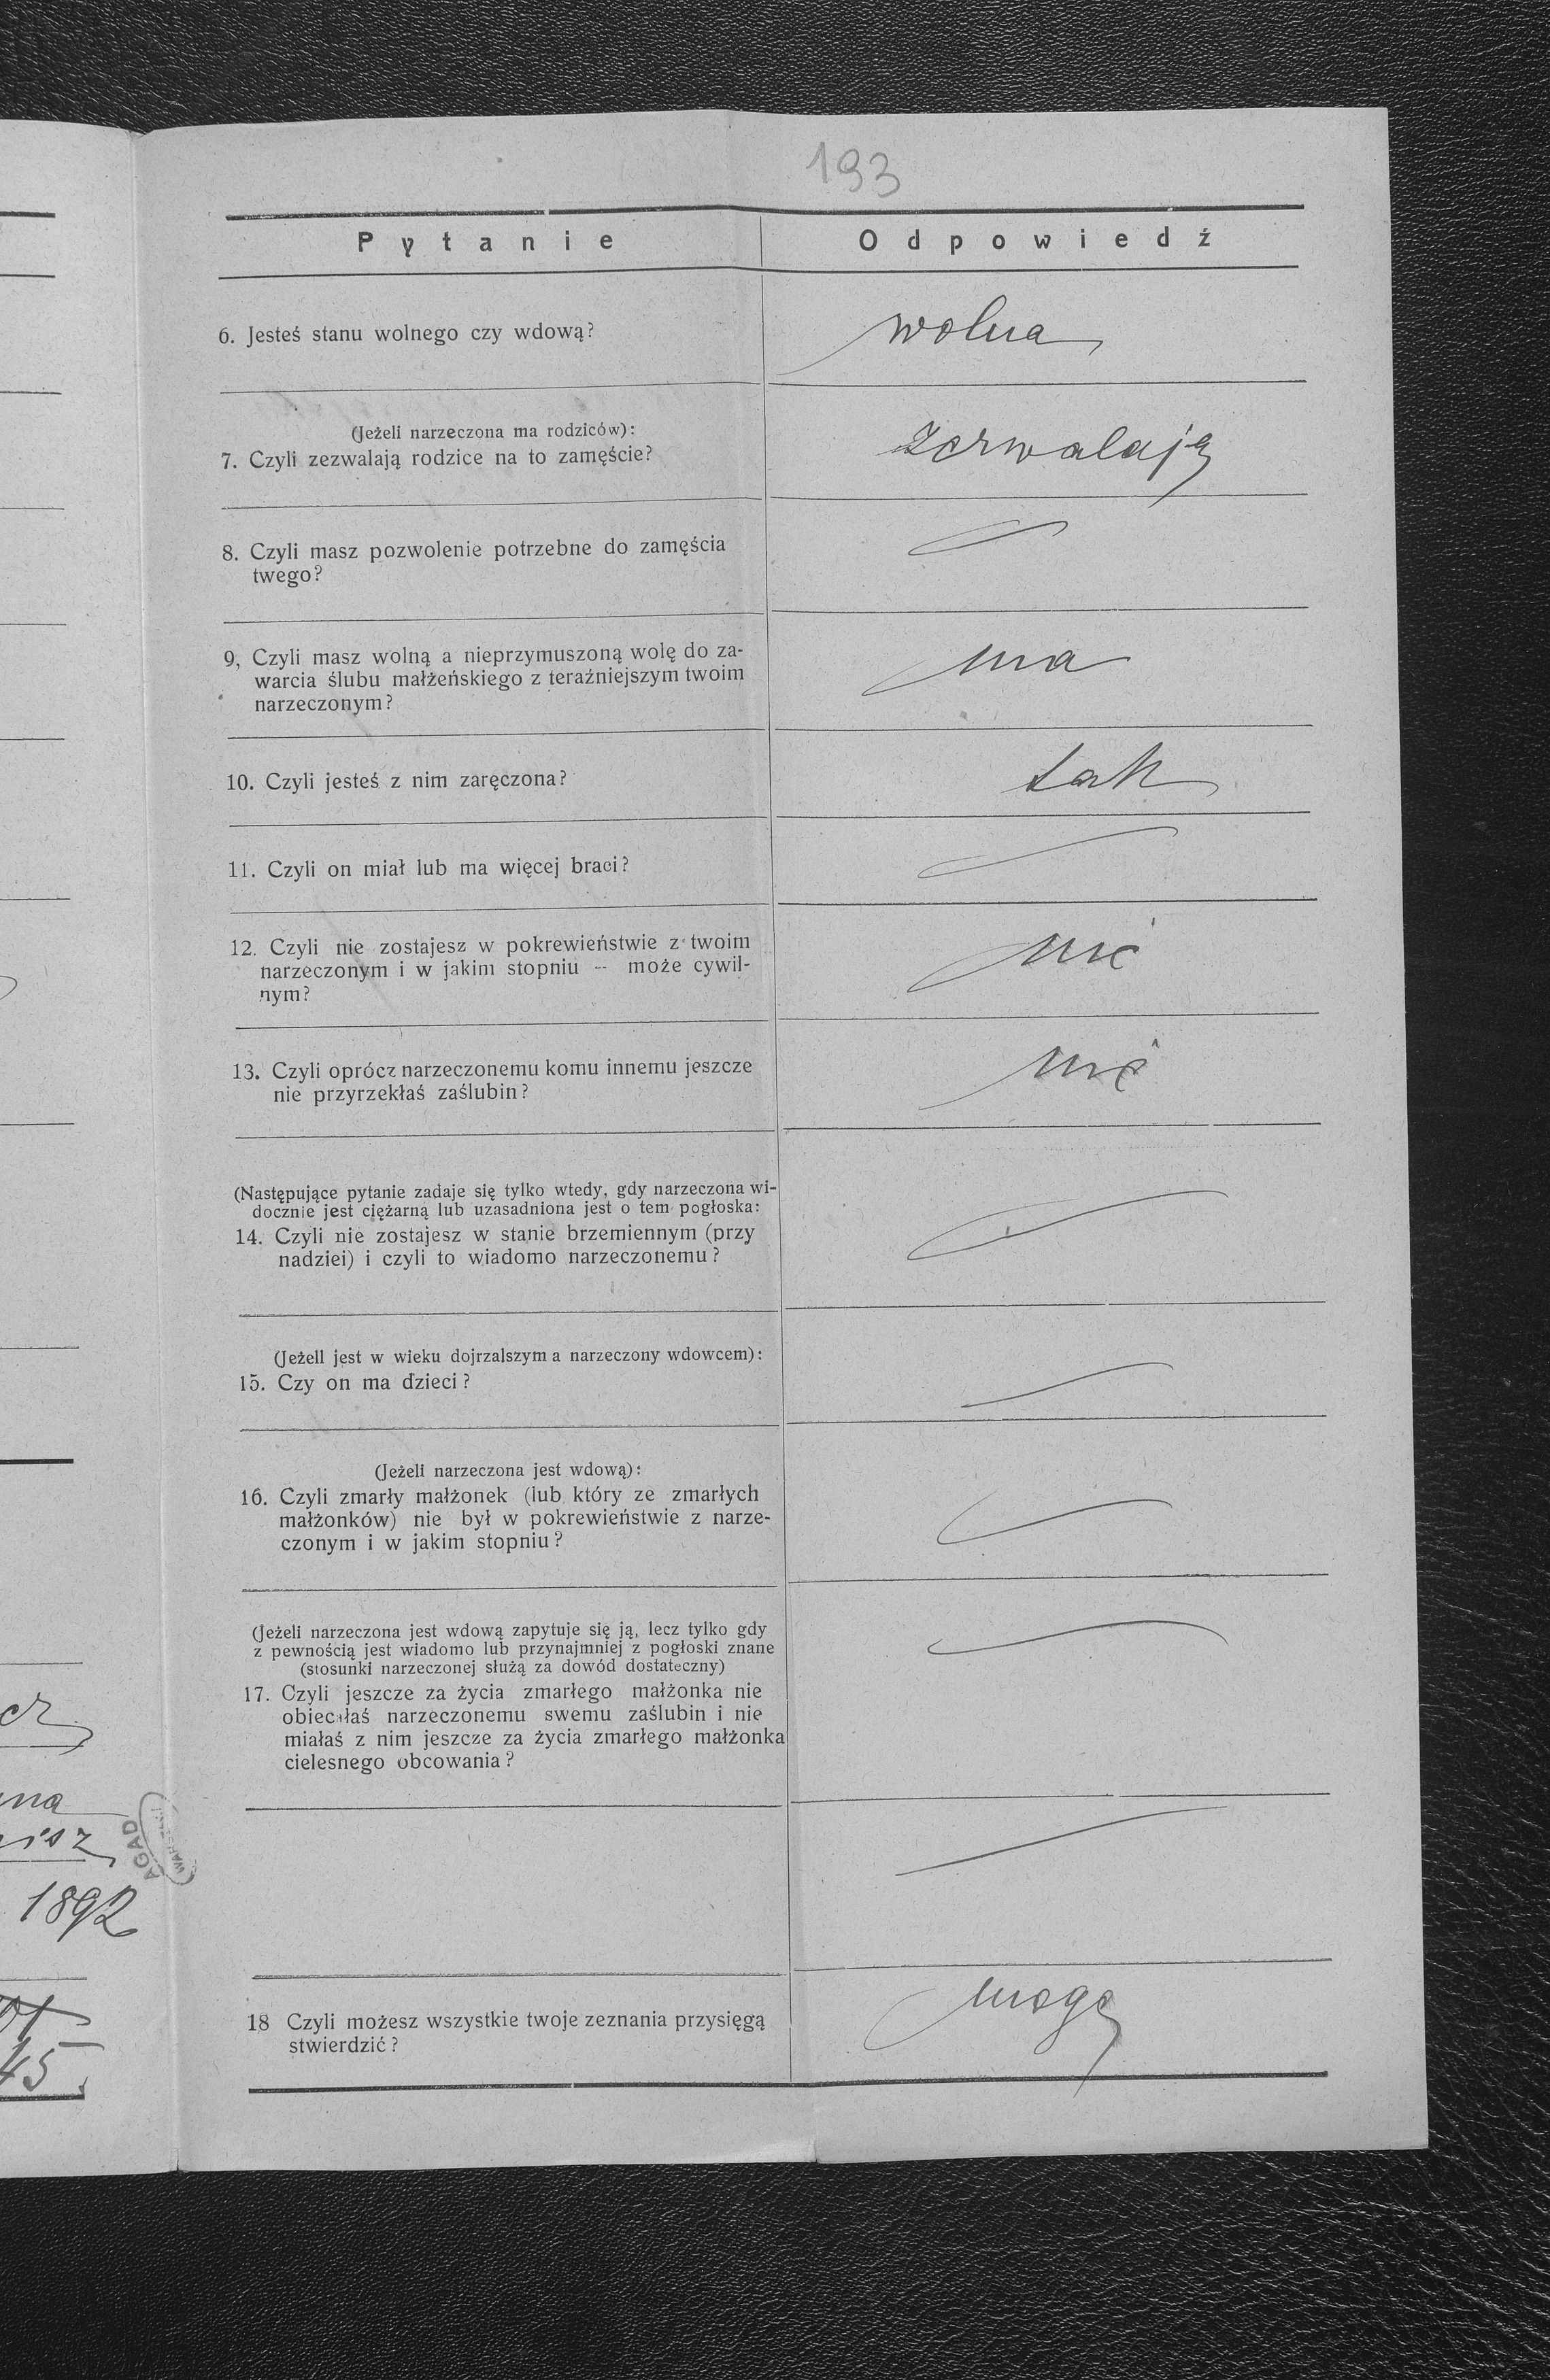 193
Pytanie
Odpowiedź
6. Jesteś stanu wolnego czy wdową?
wolna
(Jeżeli narzeczona ma rodziców):
7. Czyli zezwalają rodzice na to zamęście?
zezwalają
8. Czyli masz pozwolenie potrzebne do zamęścia
twego?
9, Czyli masz wolną a nieprzymuszoną wolę do za-
warcia ślubu małżeńskiego z teraźniejszym twoim
narzeczonym?
ma
10. Czyli jesteś z nim zaręczona?
tak
11. Czyli on miał lub ma więcej braci?
12. Czyli nie zostajesz w pokrewieństwie z twoim
narzeczonym i w jakim stopniu -- może cywil-
nym?
nie
13. Czyli oprócz narzeczonemu komu innemu jeszcze
nie przyrzekłaś zaślubin?
nie
(Następujące pytanie zadaje się tylko wtedy, gdy narzeczona wi-
docznie jest ciężarną lub uzasadniona jest o tem pogłoska:
14. Czyli nie zostajesz w stanie brzemiennym (przy
nadziei) i czyli to wiadomo narzeczonemu?
(Jeżell jest w wieku dojrzalszym a narzeczony wdowcem):
15. Czy on ma dzieci?
(Jeżeli narzeczona jest wdową):
16. Czyli zmarły małżonek (lub który ze zmarłych
małżonków) nie był w pokrewieństwie z narze-
czonym i w jakim stopniu?
(Jeżeli narzeczona jest wdową zapytuje się ją, lecz tylko gdy
z pewnością jest wiadomo lub przynajmniej z pogłoski znane
(stosunki narzeczonej służą za dowód dostateczny)
17. Czyli jeszcze za życia zmarłego małżonka nie
obiecałaś narzeczonemu swemu zaślubin i nie
miałaś z nim jeszcze za życia zmarłego małżonka
cielesnego obcowania?
18 Czyli możesz wszystkie twoje zeznania przysięgą
stwierdzić?
mogę
AGAD
1892
45